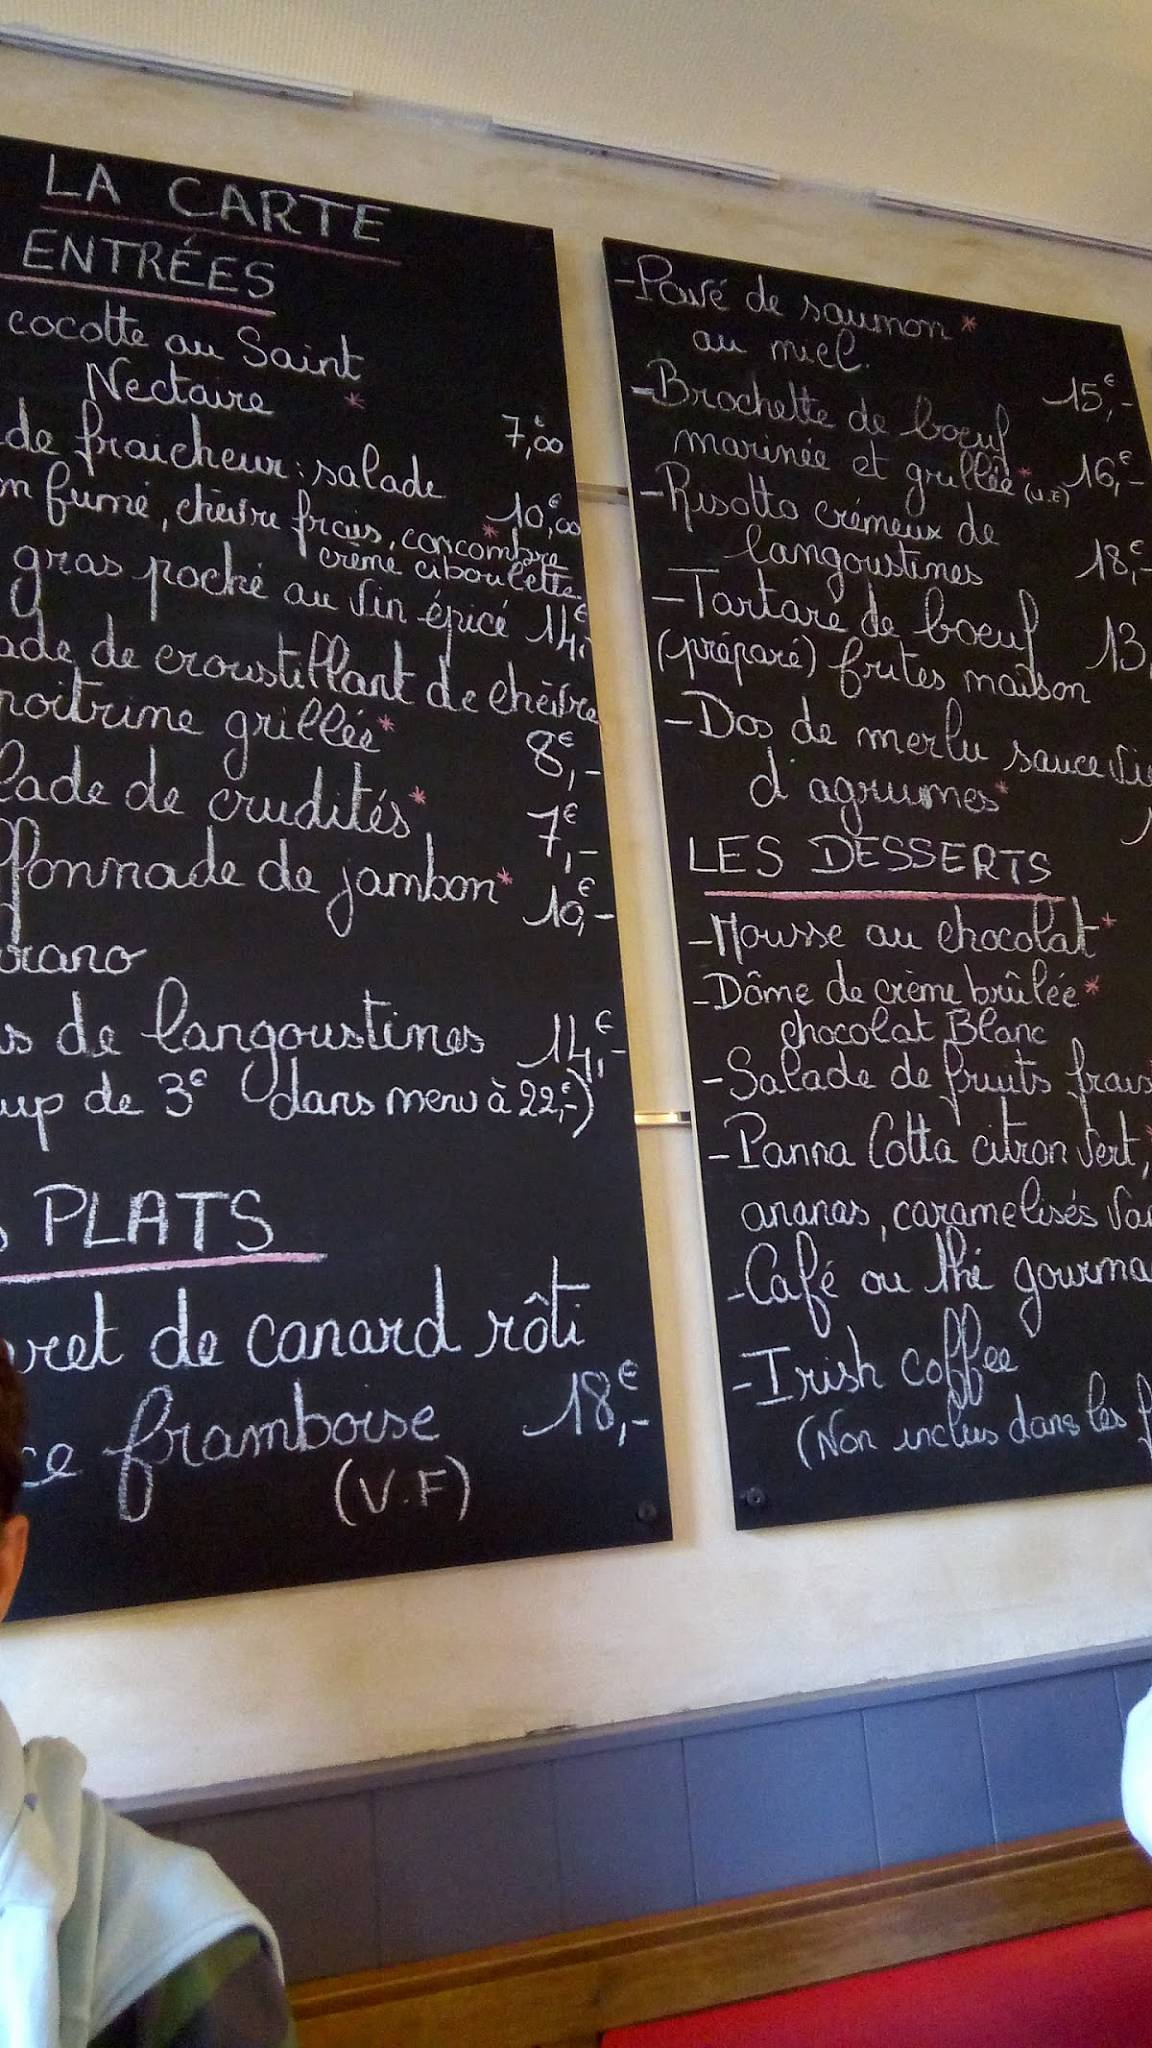 LA CARTE
ENTRÉES
cocotte au Saint
Nectaire *
7,€00
de fraicheur : salade
10,€00
fumé, chèvre frais, concombre
* crème ciboulette
gras poché au vin épicé 14,€
de croustillant de chèvre
poitrine grillée*
8€,-
de crudités*
7€,-
de jambon*
10,€-
de langoustines 14,€-
de 3€ dans menu à 22,€-)
PLATS
de canard rôti
18,€-
framboise
(V.F)
-Pavé de saumon *
au miel.
15,€-
-Brochette de boeuf
marinée et grillée* (V.F) 16,€-
-Risotto crémeux de
langoustines 18,€-
-Tartare de boeuf 13,
(préparé) frites maison
-Dos de merlu sauce
d'agrumes*
LES DESSERTS
-Mousse au chocolat*
-Dôme de crème brûlée *
chocolat Blanc
-Salade de fruits frais
-Panna Cotta citron vert,*
ananas, caramelisés
-Café ou thé
-Irish coffee
(Non inclus dans les